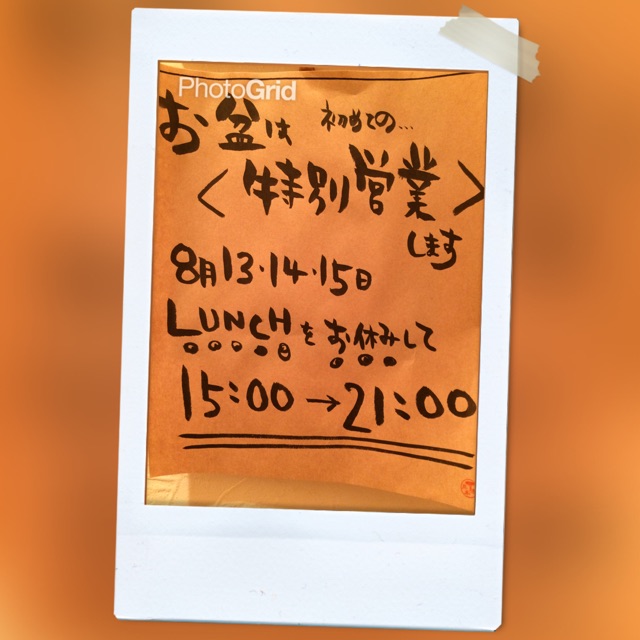 PhotoGrid
お盆は 初めての...
<特別営業>
します
8月13・14・15日
LUNCHをお休みして
15:00→21:00